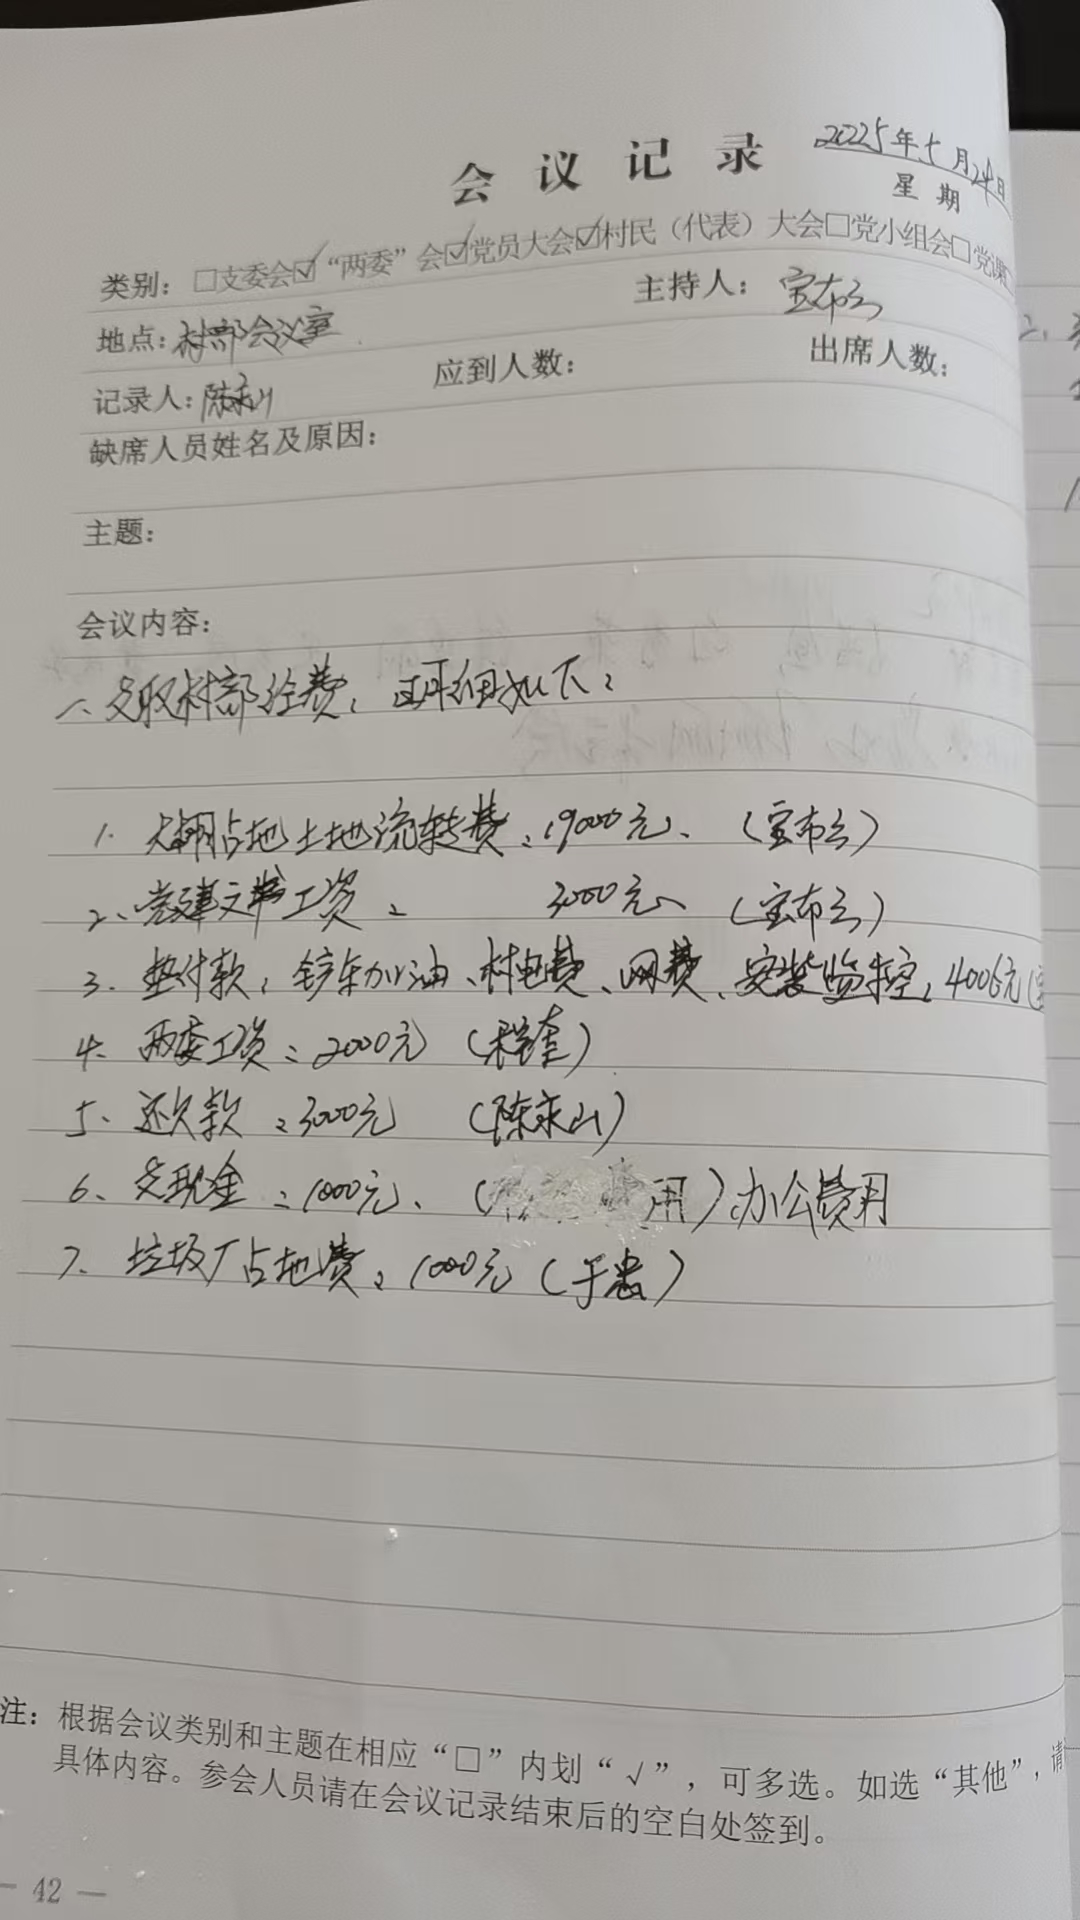 会议记录
2025年七月24日
星期
类别：□支委会☑“两委”会☑党员大会☑村民（代表）大会□党小组会□党课
地点：村部会议室 主持人：宝布云
记录人：陈永山 应到人数： 出席人数：
缺席人员姓名及原因：
主题：
会议内容：
一、支取村部经费，明细如下：
1、大棚占地土地流转费：19000元、（宝布云）
2、党建文书工资： 3000元、（宝布云）
3、垫付款：铲车加油、村电费、网费、安装监控：4006元（宝
4、两委工资：2000元（
5、还欠款：3000元（陈永山）
6、支现金：1000元、（ 用）办公费用
7、垃圾厂占地费：1000元（于忠）
注：根据会议类别和主题在相应“□”内划“√”，可多选。如选“其他”，请
具体内容。参会人员请在会议记录结束后的空白处签到。
— 42 —